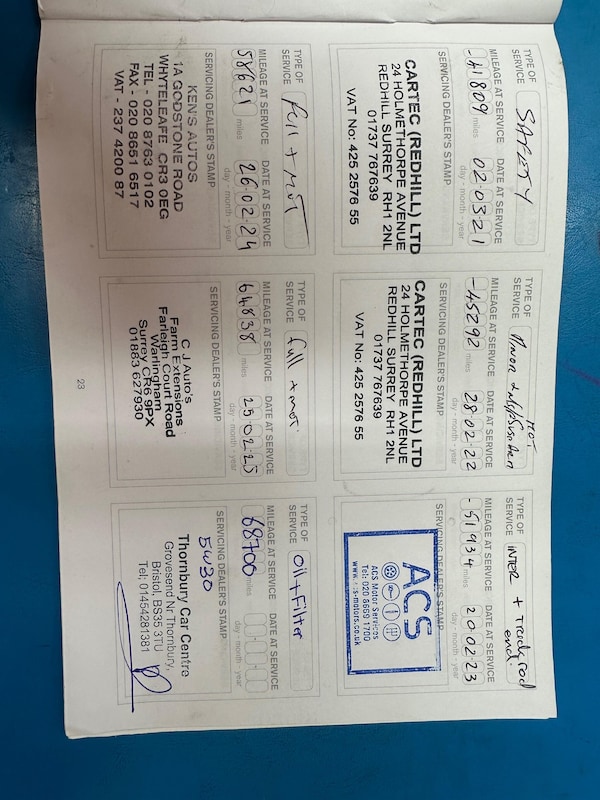 TYPE OF SERVICE SAFETY
MILEAGE AT SERVICE DATE AT SERVICE
-41809 miles 02 03 21
day - month - year
SERVICING DEALER'S STAMP
CARTEC (REDHILL) LTD
24 HOLMETHORPE AVENUE
REDHILL SURREY RH1 2NL
01737 767639
VAT No: 425 2576 55
TYPE OF SERVICE MOT
MILEAGE AT SERVICE DATE AT SERVICE
-45292 miles 28 02 22
day - month - year
SERVICING DEALER'S STAMP
CARTEC (REDHILL) LTD
24 HOLMETHORPE AVENUE
REDHILL SURREY RH1 2NL
01737 767639
VAT No: 425 2576 55
TYPE OF SERVICE INTER + Track rod end.
MILEAGE AT SERVICE DATE AT SERVICE
-51934 miles 20 02 23
day - month - year
SERVICING DEALER'S STAMP
ACS
ACS Motor Services
Tel: 020 8659 1700
www.acs-motors.co.uk
TYPE OF SERVICE Full + MOT
MILEAGE AT SERVICE DATE AT SERVICE
58621 miles 26 02 24
day - month - year
SERVICING DEALER'S STAMP
KEN'S AUTOS
1A GODSTONE ROAD
WHYTELEAFE CR3 0EG
TEL - 020 8763 0102
FAX - 020 8651 6517
VAT - 237 4200 87
TYPE OF SERVICE full + mot.
MILEAGE AT SERVICE DATE AT SERVICE
64838 miles 25 02 25
day - month - year
SERVICING DEALER'S STAMP
C J Auto's
Farm Extensions
Farleigh Court Road
Warlingham
Surrey CR6 9PX
01883 627930
TYPE OF SERVICE Oil + Filter
MILEAGE AT SERVICE DATE AT SERVICE
68700 miles
day - month - year
SERVICING DEALER'S STAMP
5W30
Thornbury Car Centre
Grovesend Nr Thornbury,
Bristol, BS35 3TU
Tel; 01454281381
23